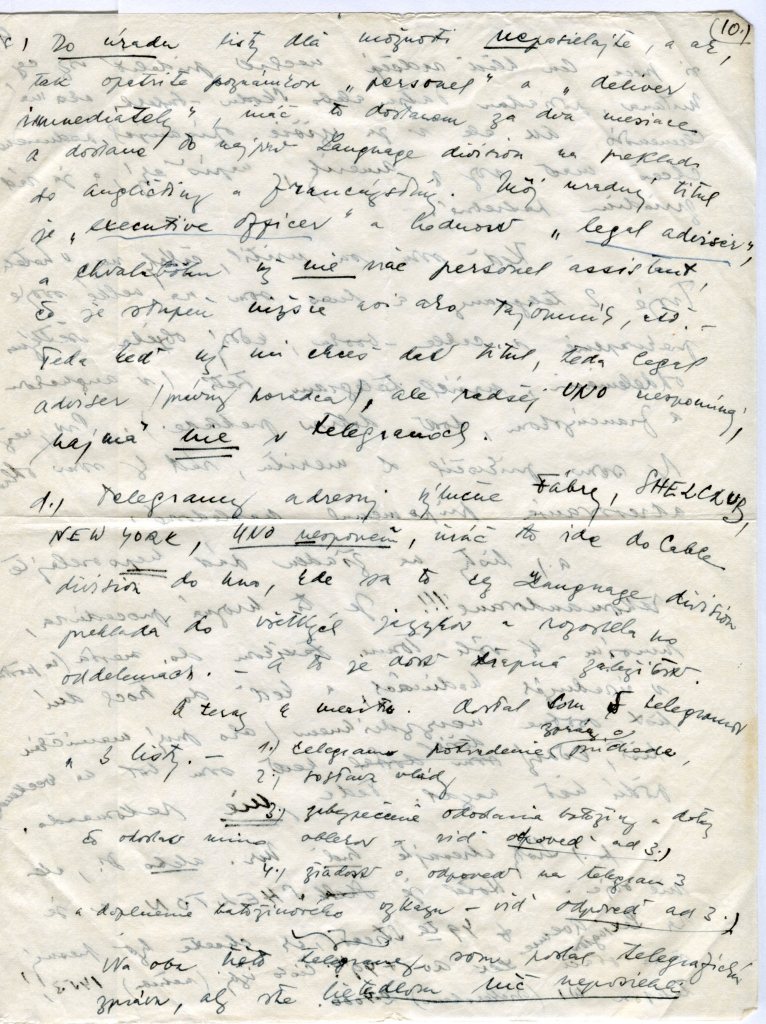 (10.)
c) Do úradu listy dľa možnosti neposielajte, a ak,
tak opatrite poznámkou „personel" a „deliver
immediately", ináč to dostanem za dva mesiace
a dostane to najprv Language division na preklad
do angličtiny a francúzštiny. Môj uradný titul
je „executive officer" a hodnosť „legal adviser",
a chvalabohu už nie viac personel assistant,
čo je stupeň nižšie ako tajomník, atď. –
Teda keď už mi chceš dať titul, teda legal
adviser (právny poradca), ale radšej UNO nespomínaj,
najmä nie v telegramoch.
d.) Telegramy adresuj výlučne Fábry, SHELCLUB,
NEW YORK, UNO nespomeň, ináč to ide do Cable
division do Uno, kde sa to cez Language division
preklada do všetkých jazykov a rozosiela po
oddeleniach. – A to je dosť trapná záležitosť.
A teraz k meritu. Dostal som 5 telegramov
a 3 listy. – 1.) telegramo potvrdenie príchodu,
správ o
2.) zostava vlády
3.) zabezpečenie odoslania batožiny a
čo odoslať mimo oblekov – viď odpoveď ad 3.)
4.) žiadosť o odpoveď na telegram 3
a doplnenie batožinového vzkazu – viď odpoveď ad 3.)
Na oba tieto telegramy som poslal telegrafickú
zprávu, aby ste lietadlom nič neposielali